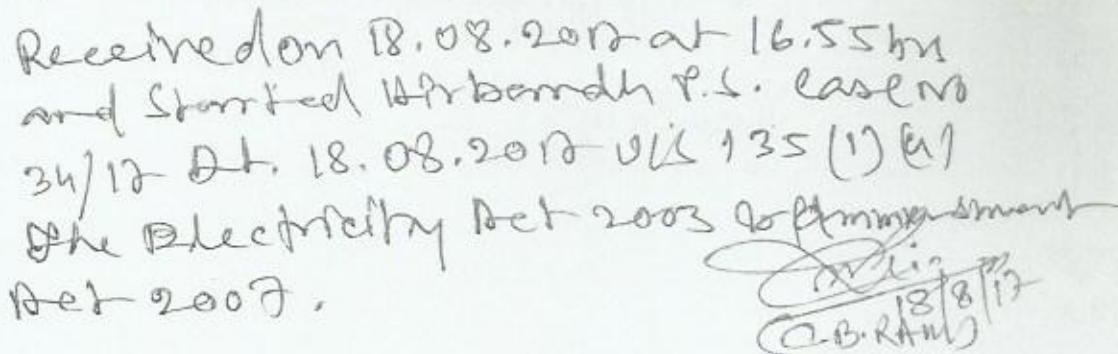 Received on 18.08.2017 at 16.55 hrs
and Started Hirbandh P.S. Case No
34/17 Dt. 18.08.2017 U/S 135 (1) (a)
the Electricity Act 2003 Ammendment
Act 2007.
18/8/17